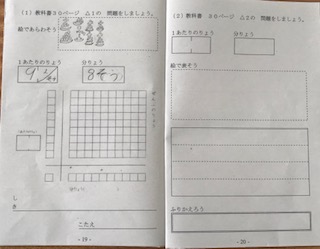 (1) 教科書30ページ △1の 問題をしましょう。
絵であらわそう
1あたりのりょう
分りょう
し
き
こたえ
- 19 -
(2) 教科書30ページ △2の 問題をしましょう。
1あたりのりょう
分りょう
絵で表そう
ふりかえろう
- 20 -